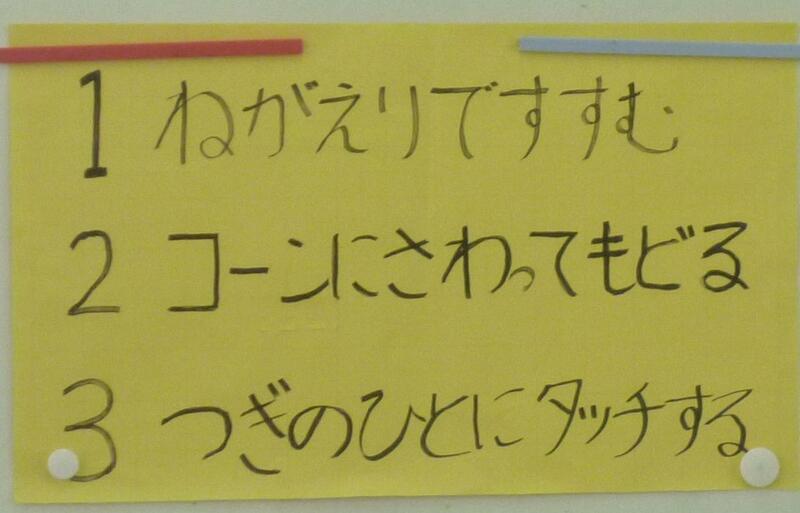 1 ねがえりですすむ
2 コーンにさわってもどる
3 つぎのひとにタッチする